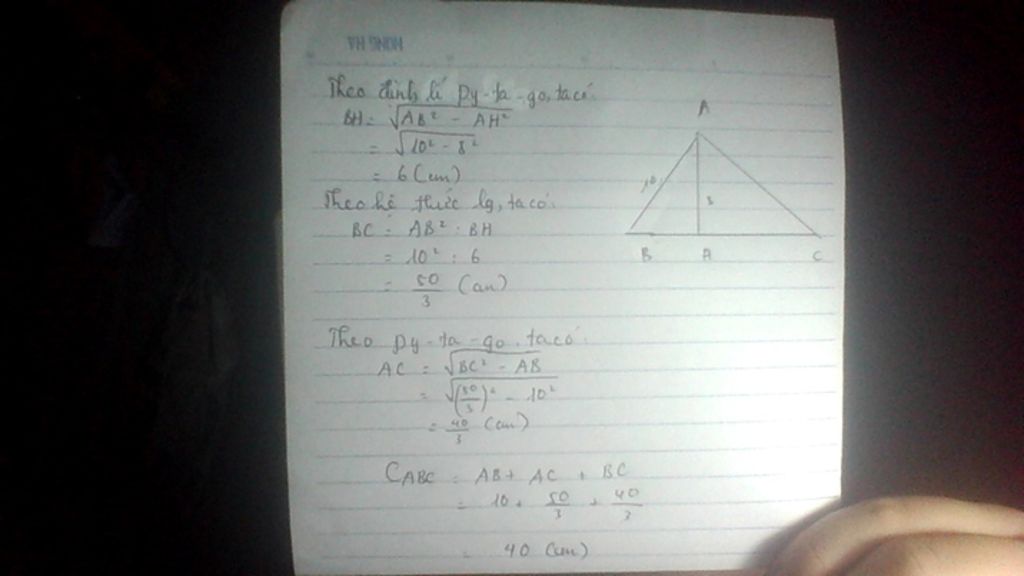 HONG HA
Theo định lí Py-ta-go, ta có:
BH = √AB² - AH²
= √10² - 8²
= 6 (cm)
Theo hệ thức lg, ta có:
BC = AB² : BH
= 10² : 6
= 50/3 (cm)
Theo py-ta-go, ta có:
AC = √BC² - AB
= √(50/3)² - 10²
= 40/3 (cm)
C ABC = AB + AC + BC
= 10 + 50/3 + 40/3
= 40 (cm)
A
10
8
B H C